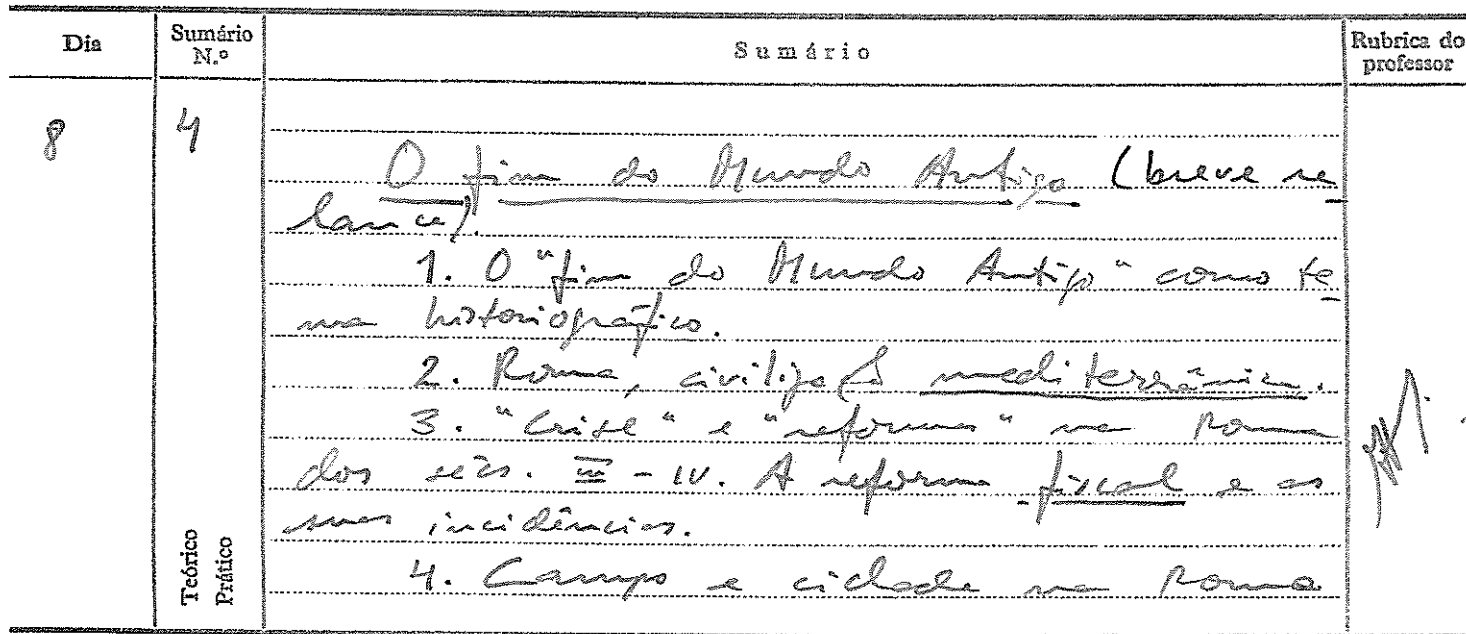 Dia Sumário N.º Sumário Rubrica do professor
8 4
O fim do Mundo Antigo (breve re
lance).
1. O "fim do Mundo Antigo" como te
ma historiográfico.
2. Roma, civilização mediterrânica.
3. "Crise" e "reforma" na Roma
dos sécs. III - IV. A reforma fiscal e as
suas incidências.
4. Campo e cidade na Roma
Teórico
Prático